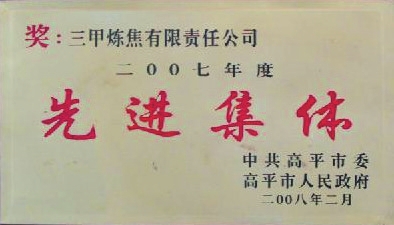 奖：三甲炼焦有限责任公司
二00七年度
先进集体
中共高平市委
高平市人民政府
二00八年二月